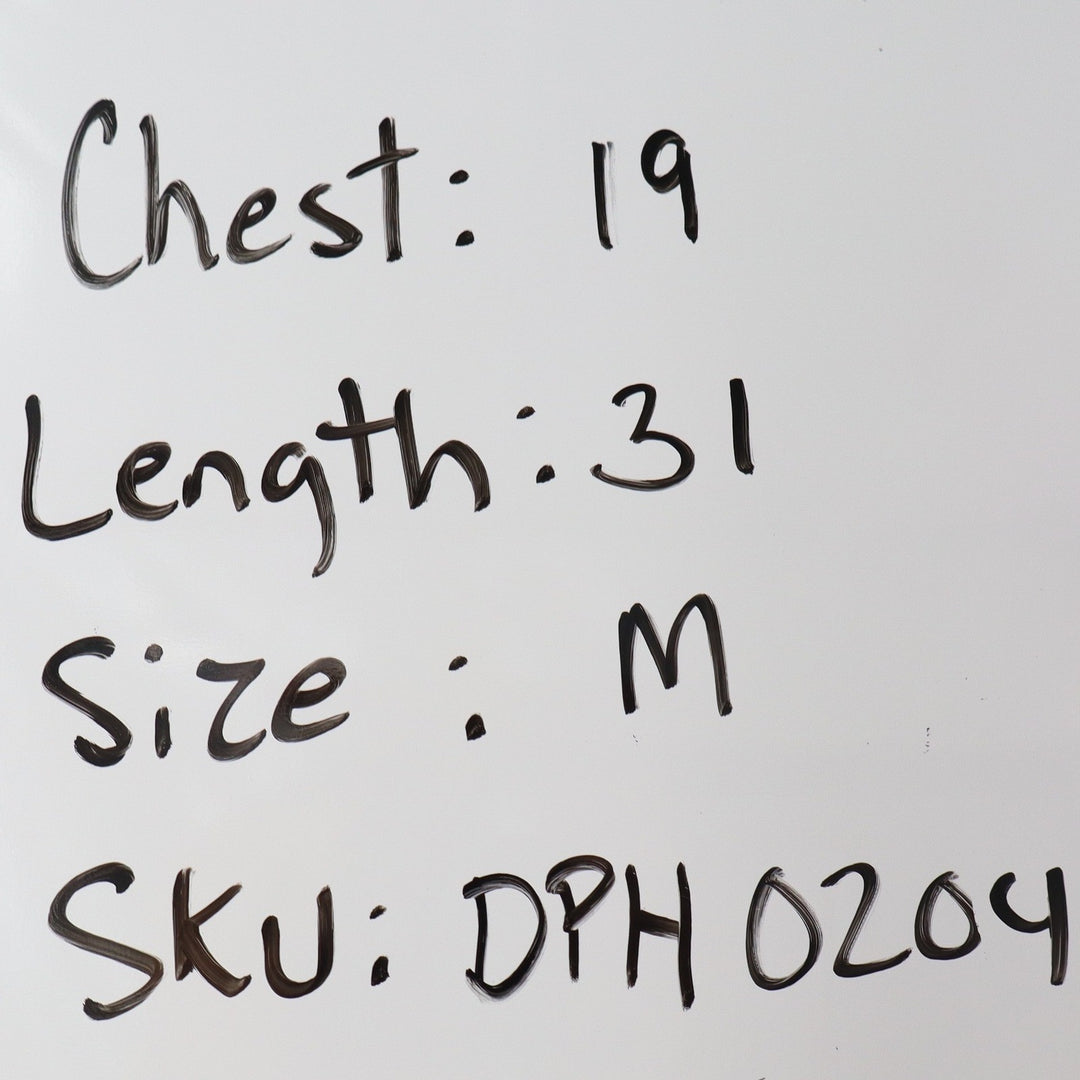 Chest: 19
Length: 31
Size : M
SKU: DPH 0204